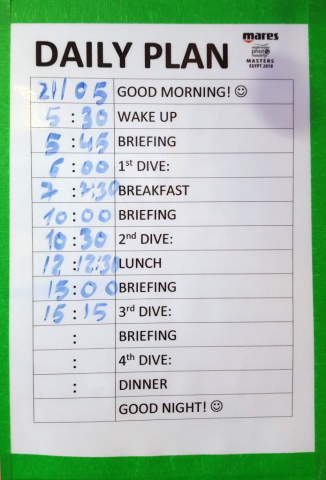 mares
photo
MASTERS
EGYPT 2018
DAILY PLAN
21/05 GOOD MORNING! ☺
5:30 WAKE UP
5:45 BRIEFING
6:00 1st DIVE:
7:7:30 BREAKFAST
10:00 BRIEFING
10:30 2nd DIVE:
12:12:30 LUNCH
15:00 BRIEFING
15:15 3rd DIVE:
: BRIEFING
: 4th DIVE:
: DINNER
GOOD NIGHT! ☺